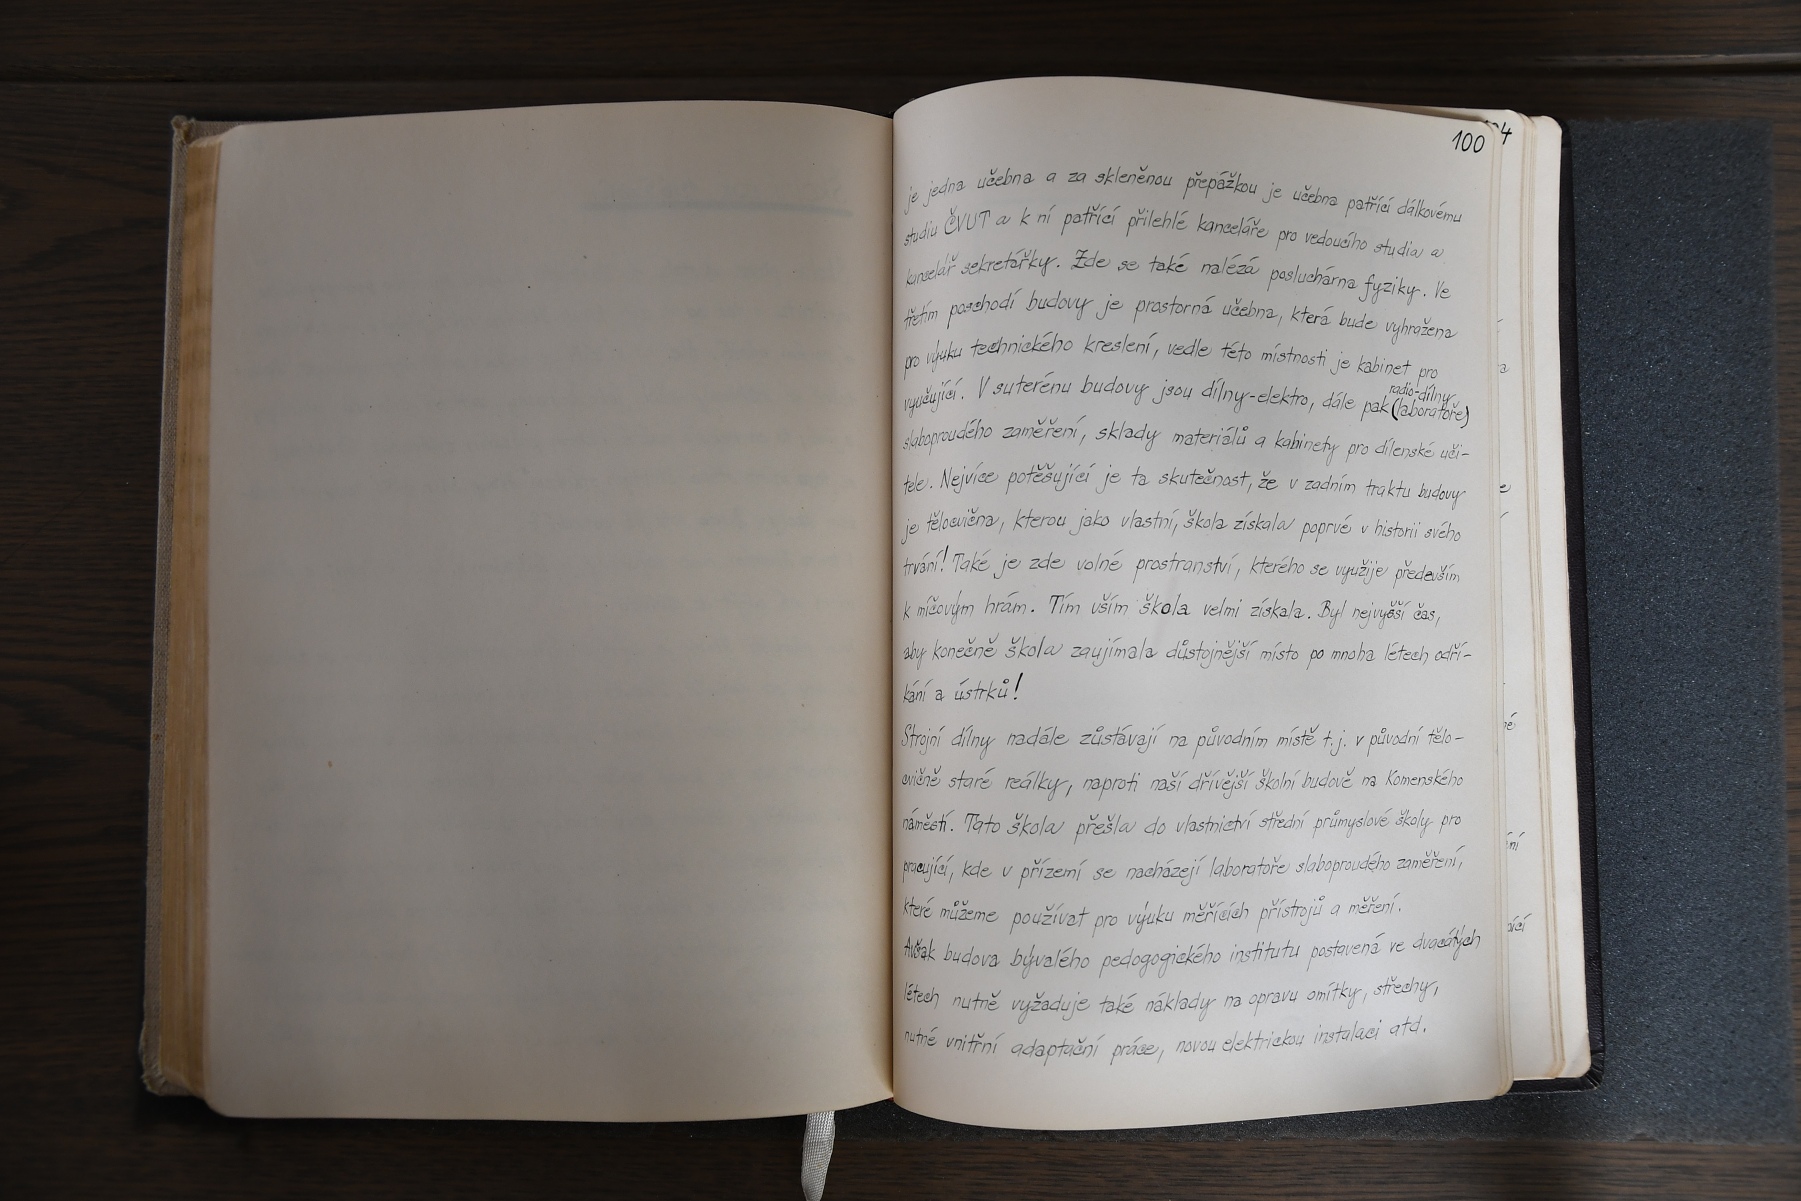 100
je jedna učebna a za skleněnou přepážkou je učebna patřící dálkovému
studiu ČVUT a k ní patřící přilehlé kanceláře pro vedoucího studia a
kancelář sekretářky. Zde se také nalézá posluchárna fyziky. Ve
třetím poschodí budovy je prostorná učebna, která bude vyhražena
pro výuku technického kreslení, vedle této místnosti je kabinet pro
vyučující. V suterénu budovy jsou dílny-elektro, dále pak radio-dílny (laboratoře)
slaboproudého zaměření, sklady materiálů a kabinety pro dílenské uči-
tele. Nejvíce potěšující je ta skutečnost, že v zadním traktu budovy
je tělocvična, kterou jako vlastní, škola získala poprvé v historii svého
trvání! Také je zde volné prostranství, kterého se využije především
k míčovým hrám. Tím vším škola velmi získala. Byl nejvyšší čas,
aby konečně škola zaujímala důstojnější místo po mnoha létech odří-
kání a ústrků!
Strojní dílny nadále zůstávají na původním místě t.j. v původní tělo-
cvičně staré reálky, naproti naší dřívější školní budově na Komenského
náměstí. Tato škola přešla do vlastnictví střední průmyslové školy pro
pracující, kde v přízemí se nacházejí laboratoře slaboproudého zaměření,
které můžeme používat pro výuku měřících přístrojů a měření.
Avšak budova bývalého pedogogického institutu postavená ve dvacátých
létech nutně vyžaduje také náklady na opravu omítky, střechy,
nutné vnitřní adaptační práce, novou elektrickou instalaci atd.